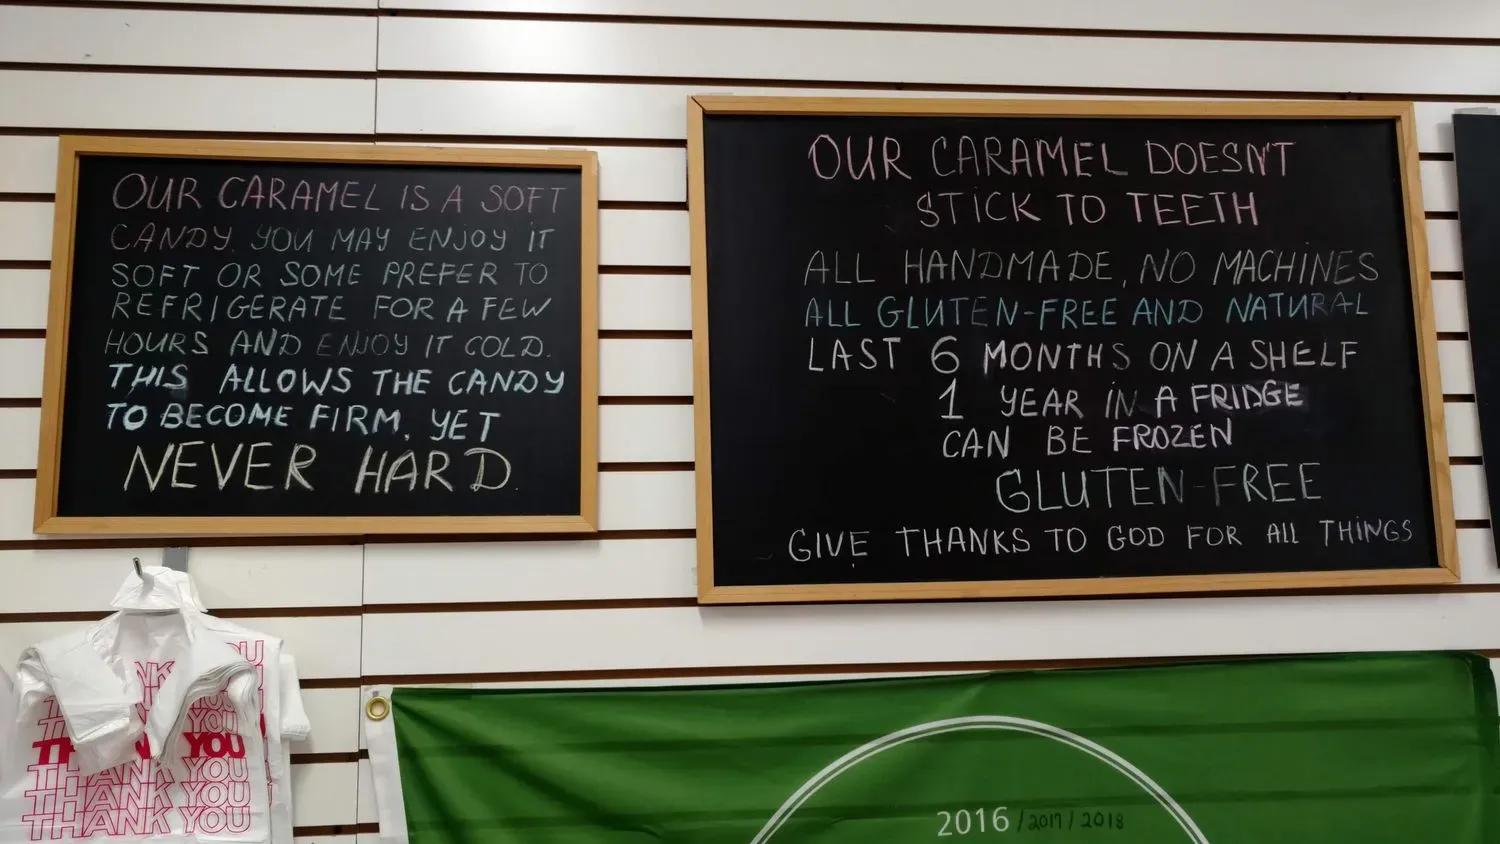 OUR CARAMEL IS A SOFT
CANDY. YOU MAY ENJOY IT
SOFT OR SOME PREFER TO
REFRIGERATE FOR A FEW
HOURS AND ENJOY IT COLD.
THIS ALLOWS THE CANDY
TO BECOME FIRM, YET
NEVER HARD.
OUR CARAMEL DOESN'T
STICK TO TEETH
ALL HANDMADE, NO MACHINES
ALL GLUTEN-FREE AND NATURAL
LAST 6 MONTHS ON A SHELF
1 YEAR IN A FRIDGE
CAN BE FROZEN
GLUTEN-FREE
GIVE THANKS TO GOD FOR ALL THINGS
YOU
THANK YOU
THANK YOU
THANK YOU
THANK YOU
2016 / 2017 / 2018